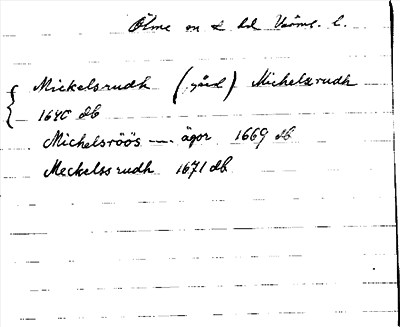 Ölme sn o hd Värml. l.
Mickelsrudh (gård) Michelsrudh
1640 db
Michelsröös — ägor 1669 db
Meckelssrudh 1671 db